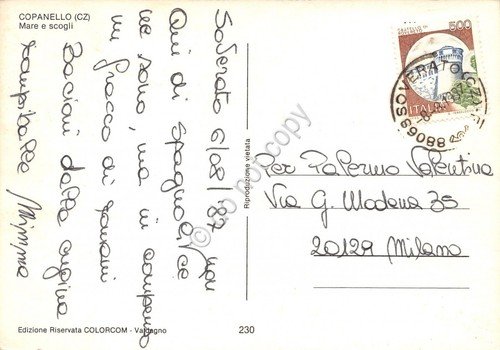 COPANELLO (CZ)
Mare e scogli
Soverato 6/08/'87
Qui di spagnoli ce
ne sono, ma in compenso
un fracco di
Bacioni dalla cugina
Mimma
Riproduzione vietata
do not copy
500
ITALIA
SOVERATO (CZ)
88068
Per Palermo Valentina
Via G. Modena 35
20129 Milano
Edizione Riservata COLORCOM - Valdagno
230